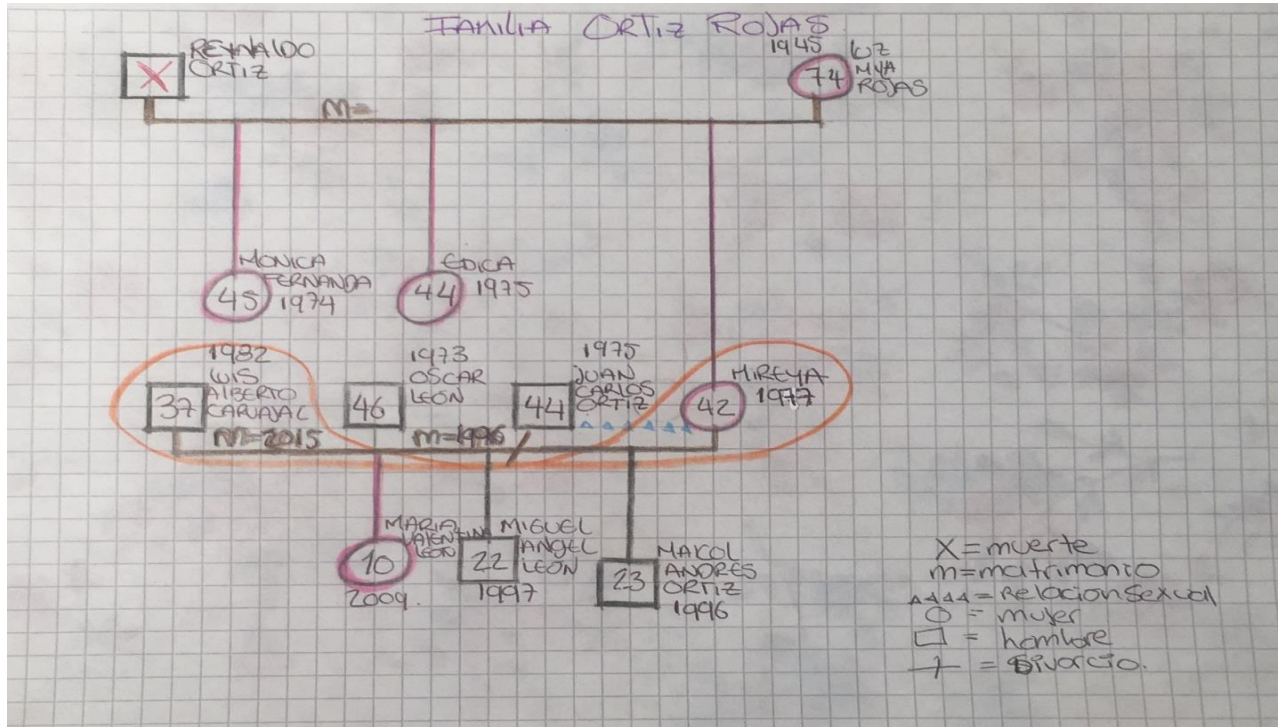 FAMILIA ORTIZ ROJAS
REYNALDO
ORTIZ
X
1945
LUZ
MYA
ROJAS
74
M=
MONICA
FERNANDA
1974
45
EDICA
1975
44
1982
LUIS
ALBERTO
CARVAJAL
37
M=2015
1973
OSCAR
LEÓN
46
M=1996
1975
JUAN
CARLOS
ORTIZ
44
MIREYA
1977
42
MARIA
VALENTINA
LEÓN
10
2009.
MIGUEL
ANGEL
LEÓN
22
1997
MAICOL
ANDRES
ORTIZ
23
1996
X=muerte
m=matrimonio
= Relacion Sexual
= mujer
= hombre
= Divorcio.